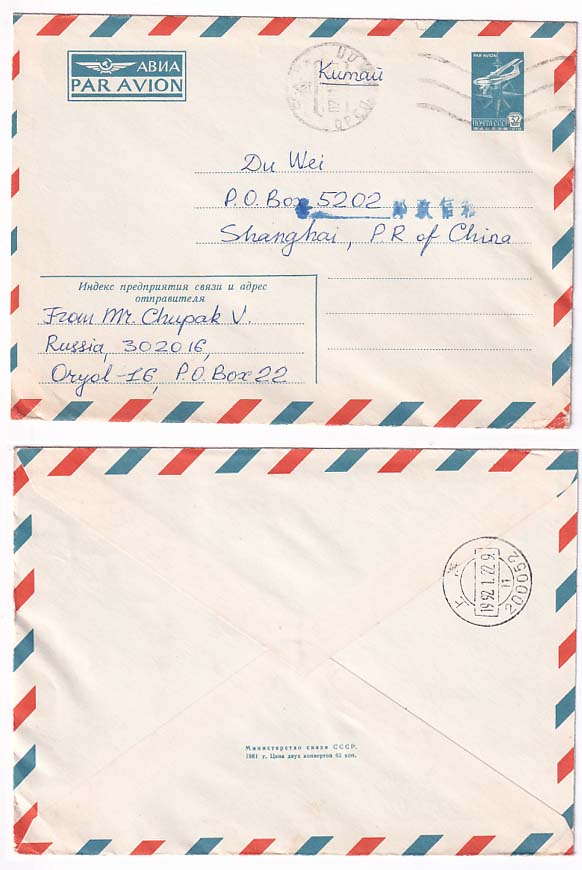 АВИА
PAR AVION
Китай
PAR AVION
ПОЧТА СССР
32
Du Wei
P.O.Box 5202 邮政信箱
Shanghai, P.R of China
Индекс предприятия связи и адрес
отправителя
From Mr. Chupak V.
Russia, 302016,
Oryol-16, P.O.Box 22
上海
1992.1.22.9
200052
Министерство связи СССР.
1981 г. Цена двух конвертов 65 коп.